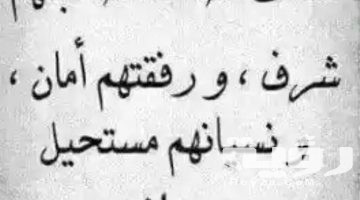 شرف ، و رفقتهم أمان ،
و نسيانهم مستحيل
رؤية